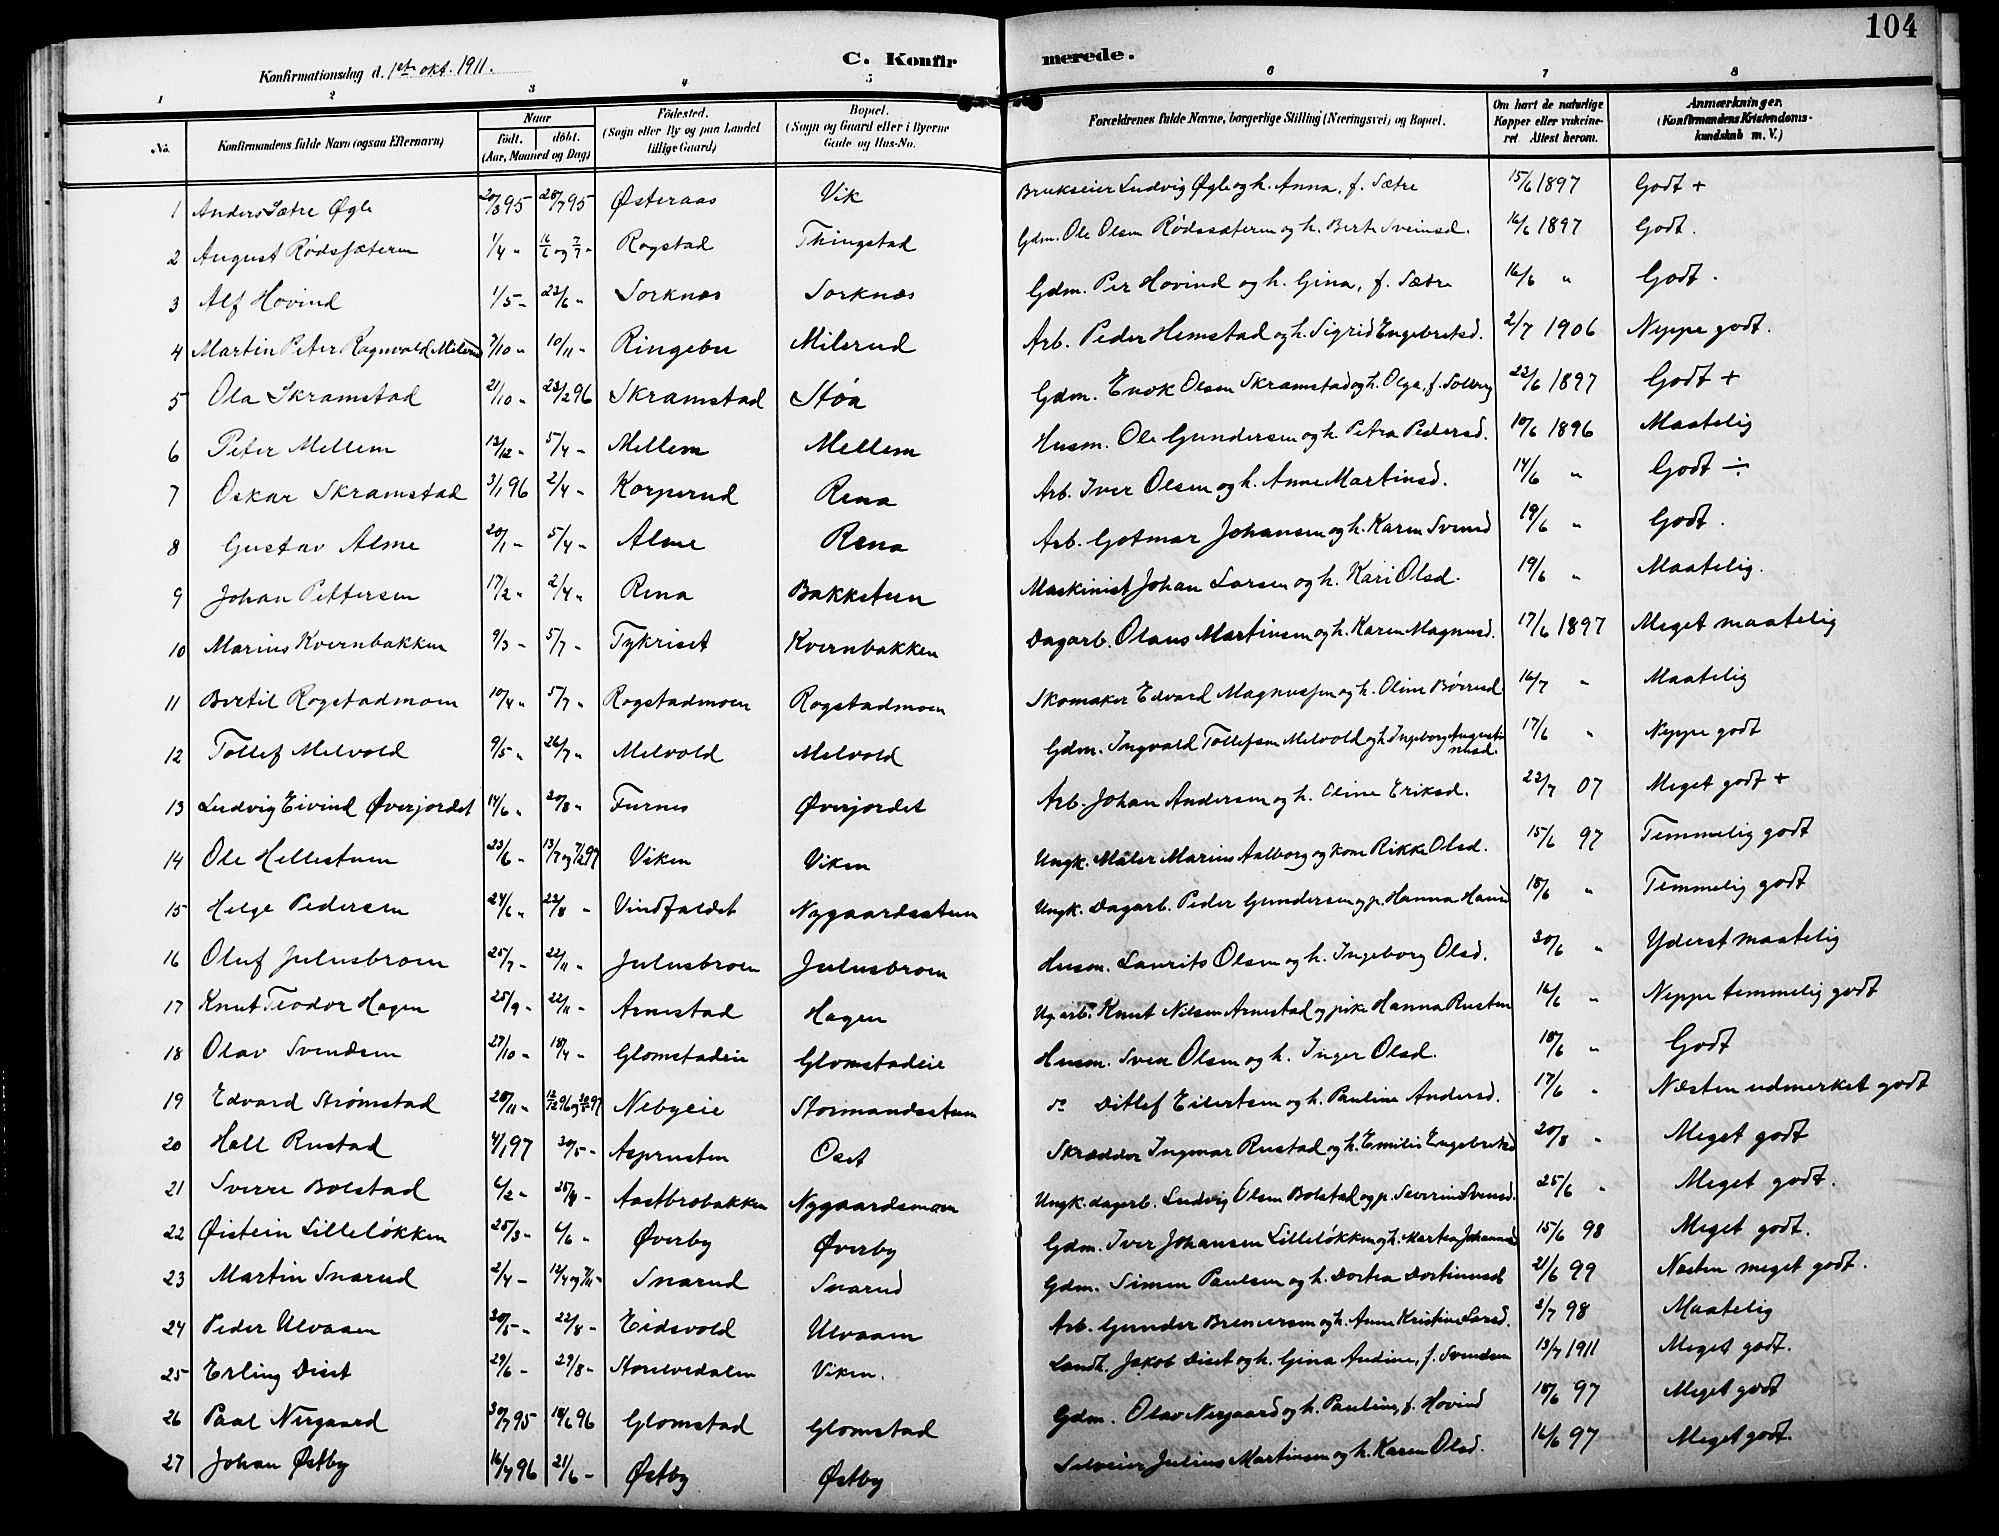 104
C. Konfirmerede.
Konfirmationsdag d. 1ste okt. 1911.
1 2 3 4 5 6 7 8
No.
Konfirmandens fulde Navn (ogsaa Efternavn)
Naar
født. døbt.
(Aar, Maaned og Dag)
Fødested.
(Sogn eller By og paa Landet
tillige Gaard)
Bopæl.
(Sogn og Gaard eller i Byerne
Gade og Hus-No.
Forældrenes fulde Navne, borgerlige Stilling (Næringsvei) og Bopæl.
Om havt de naturlige
Kopper eller vakcine-
ret Attest herom.
Anmærkninger.
(Konfirmandens Kristendoms-
kundskab m. V.)
1 Anders Sætre Øgle 20/3 95 28/7 95 Østeraas Vik Brukseier Ludvig Øgle og h. Anna, f. Sætre 15/6 1897 Godt +
2 August Rødssæteren 1/4 " 16/2 og 7/7 " Rogstad Thingstad Gdm. Ole Olsen Rødssæteren og h. Berte Sveinsd. 16/6 1897 Godt.
3 Alf Hovind 1/5 " 23/6 " Sorknes Sorknæs Gdm. Per Hovind og h. Gina, f. Sætre 16/6 " Godt.
4 Martin Peter Ragnvald (Milerud 7/10 " 10/11 " Ringebu Milerud Arb. Peder Hemstad og h. Sigrid Engebretsd. 2/7 1906 Neppe godt.
5 Ola Skramstad 21/10 " 23/2 96 Skramstad Støa Gdm. Enok Olsen Skramstad og h. Olga, f. Solberg 22/6 1897 Godt +
6 Peter Mellem 13/12 " 5/4 " Mellem Mellem Husm. Ole Gundersen og h. Petra Pedersd. 10/6 1896 Maatelig
7 Oskar Skramstad 3/1 96 2/4 " Korperud Rena Arb. Iver Olsen og h. Anne Martinsd. 14/6 " Godt ÷
8 Gustav Alme 20/1 " 5/4 " Alme Rena Arb. Gotmar Johansen og h. Karen Svensd 19/6 " Godt.
9 Johan Pettersen 17/2 " 2/4 " Rena Bakketeen Maskinist Johan Larsen og h. Kari Olsd. 19/6 " Maatelig.
10 Marius Kvernbakken 9/3 " 5/7 " Tykriset Kvernbakken Dagarb. Olaus Martinsen og h. Karen Magnusd. 17/6 1897 Meget maatelig
11 Bertil Rogstadmoen 10/4 " 5/7 " Rogstadmoen Rogstadmoen Skomaker Edvard Magnussen og h. Oline Børrud 16/7 " Maatelig
12 Tollef Melvold 9/5 " 26/7 " Melvold Melvold Gdm. Ingvald Tollefsen Melvold og h. Ingeborg Augusti-
nusd. 17/6 " Neppe godt
13 Ludvig Eivind Øverjordet 14/6 " 20/8 " Furnes Øverjordet Arb. Johan Andersen og h. Oline Eriksd. 22/7 07 Meget godt +
14 Ole Hellesteen 23/6 " 13/7 og 7/2 97 Viken Viken Ungk. Maler Marius Aalborg og kone Rikke Olsd. 15/6 97 Temmelig godt
15 Helge Pedersen 24/6 " 23/8 " Vindfaldet Nygaardssteen Ungk. Dagarb. Peder Gundersen og p. Hanna Hansd 18/6 " Temmelig godt
16 Oluf Julusbroen 25/7 " 22/11 " Julusbroen Julusbroen Husm. Laurits Olsen og h. Ingeborg Olsd. 30/6 " Yderst maatelig
17 Knut Teodor Hagen 25/9 " 22/11 " Arnestad Hagen Ug. arb. Knut Nilsen Arnestad og pike Hanna Rusten 16/6 " Neppe temmelig godt
18 Olav Svendsen 27/10 " 18/4 " Glomstadeie Glomstadeie Husm. Sven Olsen og h. Inger Olsd. 18/6 " Godt
19 Edvard Strømstad 28/11 " Nebyeie Stormandssteen do Ditlef Eilertsen og h. Pauline Andersd. 17/6 " Næsten udmerket godt
20 Hall Rustad 4/1 97 30/5 " Asprusten Oset Skrædder Ingmar Rustad og h. Emilie Engebretsd 20/8 " Meget godt
21 Sverre Bolstad 6/2 " 25/4 " Aastbrobakken Nygaardsmoen Ungk. dagarb. Ludvig Olsen Bolstad og p. Severine Svensd. 25/6 " Meget godt.
22 Øistein Lilleløkken 25/3 " 6/6 " Øverby Øverby Gdm. Iver Johansen Lilleløkken og h. Martea Johannesd 15/6 98 Meget godt.
23 Martin Snarud 2/4 " 12/4 og 7/11 " Snarud Snarud Gdm. Simen Paulsen og h. Dortea Dortinusd 21/6 99 Næsten meget godt.
24 Peder Ulvaaen 30/5 " 22/8 " Eidsvold Ulvaaen Arb. Gunder Brenersen og h. Anne Kristine Larsd. 2/7 98 Maatelig
25 Erling Diset 29/6 " 29/8 " Storelvedalen Viken. Landh. Jakob Diset og h. Gina Andine, f. Svendsen 13/7 1911 Meget godt.
26 Paal Nergaard 30/7 95 14/6 96 Glomstad Glomstad Gdm. Olav Nergaard og h. Pauline, f. Hovind 18/6 97 Meget godt
27 Johan Østby 16/4 96 21/6 " Østby Østby Selveier Julius Martinsen og h. Karen Olsd. 16/6 97 Meget godt.